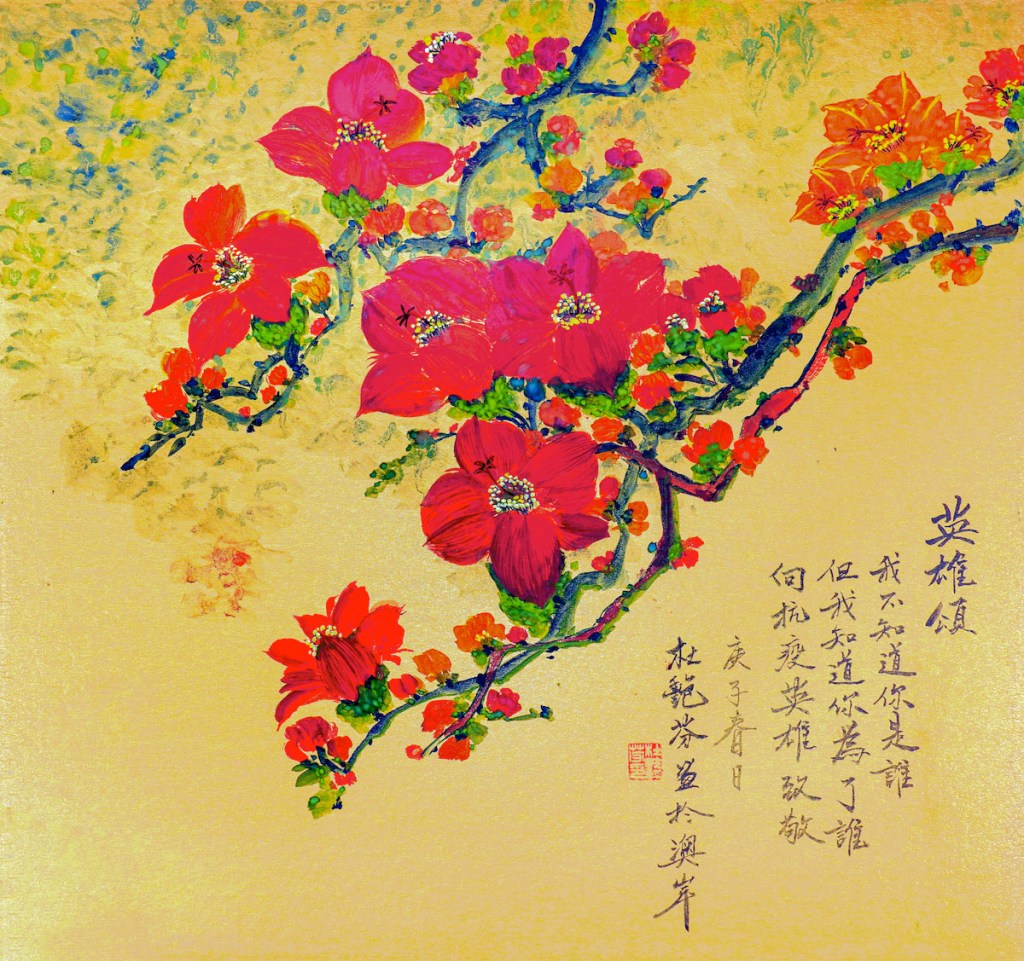 英雄頌
我不知道你是誰
但我知道你為了誰
向抗疫英雄致敬
庚子春日
杜艷芬畫於澳岸